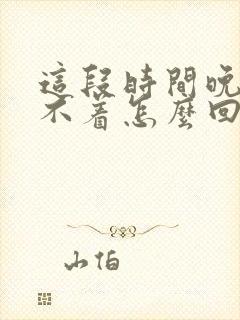 這段時間晚
不着怎麼回
山伯